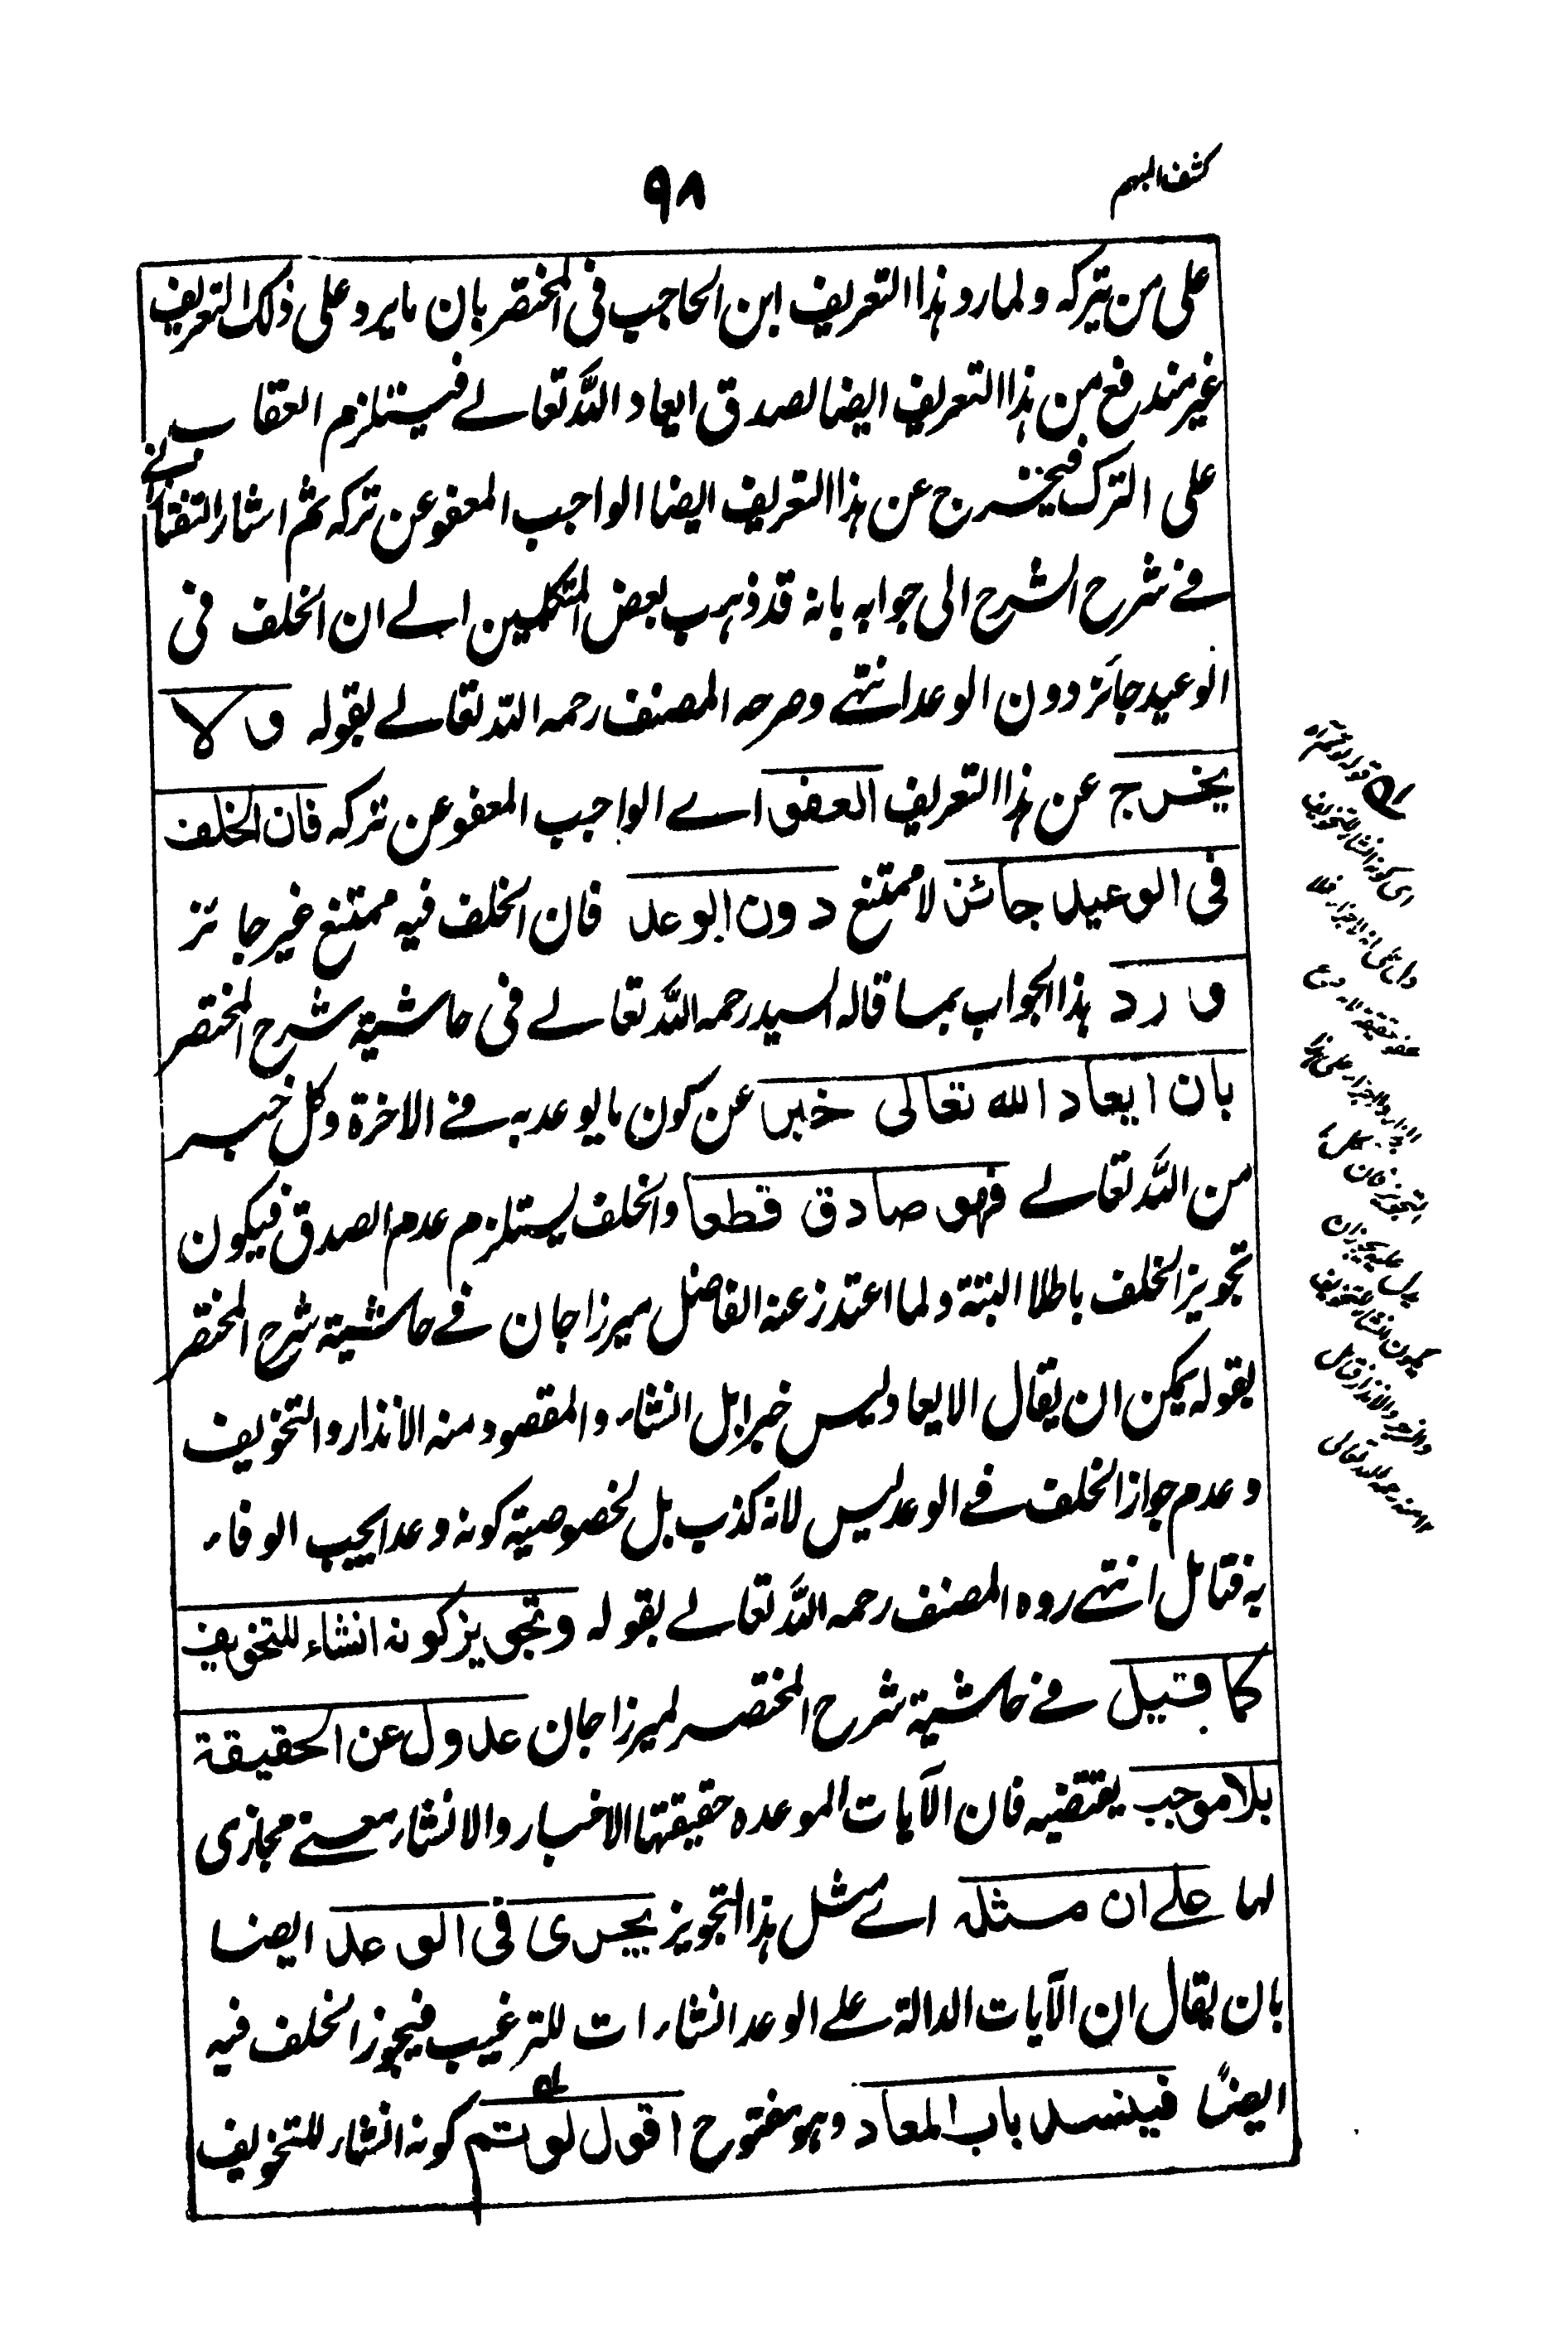 كشف المبهم
٩٨
على من تركه ولما رد هذا التعريف ابن الحاجب فى المختصر بان ما يرد على ذلك التعريف
غير مندفع من هذا التعريف ايضا لصدق ايعاد الله تعالے فيستلزم العقاب
على الترك فيخرج عن هذا التعريف ايضا الواجب المعفو عن تركه ثم اشار التفتازانے
فے شرح الشرح الى جوابه بانه قد ذهب بعض المتكلمين الے ان الخلف فى
الوعيد جائز دون الوعد انتهے وصرحه المصنف رحمه الله تعالے بقوله و لا
يخرج عن هذا التعريف العفو اے الواجب المعفو عن تركه فان الخلف
فى الوعيد جائز لا ممتنع دون الوعد فان الخلف فيه ممتنع غير جائز
و رد هذا الجواب بما قاله السيد رحمه الله تعالے فى حاشية شرح المختصر
بان ايعاد الله تعالى خبر عن كون ما يوعد به فے الاخرة وكل خبر
من الله تعالے فهو صادق قطعا والخلف يستلزم عدم الصدق فيكون
تجويز الخلف باطلا البتة ولما اعتذر عنه الفاضل ميرزا جان فے حاشية شرح المختصر
بقوله يمكن ان يقال الايعاد ليس خبرا بل انشاء والمقصود منه الانذار والتخويف
وعدم جواز الخلف فے الوعد ليس لانه كذب بل لخصوصية كونه وعدا يجب الوفاء
به فتامل انتهے رده المصنف رحمه الله تعالے بقوله وتجويز كونه انشاء للتخويف
كما قيل فے حاشية شرح المختصر لميرزا جان عدول عن الحقيقة
بلا موجب يقتضيه فان الآيات الموعده حقيقتها الاخبار والانشاء معنے مجازى
لها علے ان مثله اے مثل هذا التجويز يجرى فى الوعد ايضا
بان يقال ان الآيات الدالة علے الوعد انشاءات للترغيب فيجوز الخلف فيه
ايضًا فينسد باب المعاد وهو مفتوح اقول لو تم كونه انشاء للتخويف
قوله لو تم
اى كونه انشاء للتخويف
التجويز فان
يكون انشاء للتخويف
منه رحمه الله تعالى